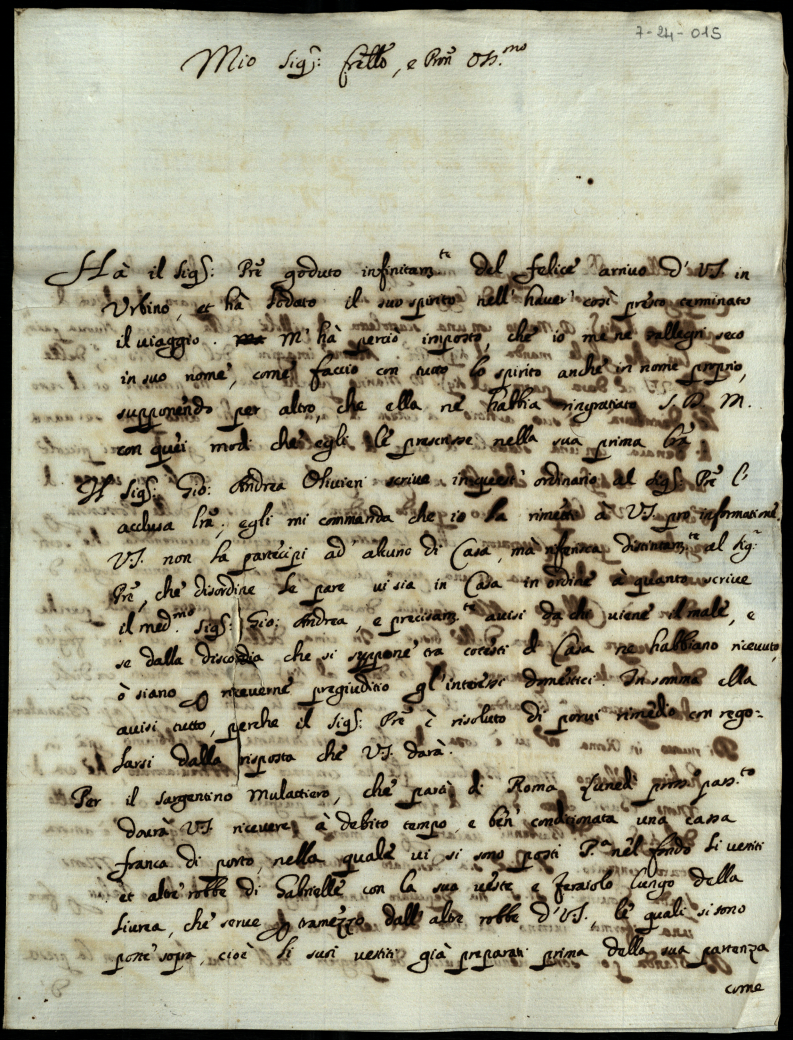 7-24-015
Mio Sig.r: fratello, e Pron Oss.mo
Hà il Sig.r: Prē goduto infinitam.te del felice arriuo d' VS. in
Vrbino, et hà lodato il suo spirito nell' hauer' così presto terminato
il uiaggio. M' hà perciò imposto, che io me ne rallegri seco
in suo nome, come faccio con tutto lo spirito anche in nome proprio,
supponendo per altro, che ella ne habbia ringratiato S. D. M.
con quei modi che egli le prescrisse nella sua prima lrā
Il Sig.r: Gio: Andrea Oliuieri scriue in quest' ordinario al Sig.r: Prē l'
acclusa lrā; egli mi commanda che io la rimetti à VS. pro informatione,
VS. non la partecipi ad' alcuno di Casa, mà riferisca distintam.te al Sig.r
Prē, che disordine le pare ui sia in Casa in ordine à quanto scriue
il med.mo Sig.r: Gio: Andrea, e precisam.te auisi da che uiene il male, e
se dalla discordia che si suppone tra cotesti di Casa ne habbiano riceuuto,
ò siano p riceuerne pregiuditio gl' interessi domestici. In somma ella
auisi tutto, perche il Sig.r: Prē è risoluto di porui rimedio con rego=
larsi dalla risposta che VS. darà.
Per il Sargentino Mulattiero, che partì di Roma lunedì pross.o pass.to
dourà VS. riceuere à debito tempo, e ben' conditionata una cassa
franca di porto, nella quale ui si sono posti P.a nel fondo li uestiti
et altre robbe di Gabrielle con la sua ueste e feraiolo lungo della
liurea, che serue p tramezzo dall' altre robbe d' VS., le quali si sono
poste sopra, cioè li suoi uestiti già preparati prima della sua partenza
come